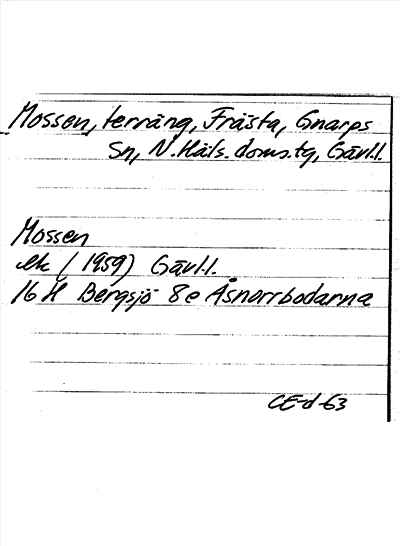 Mossen, terräng, Frästa, Gnarps
Sn, N. Häls. doms.tg, Gävl.l.
Mossen
ek (1959) Gävl.l.
16 H Bergsjö 8e Åsnorrbodarna
CE-d-63